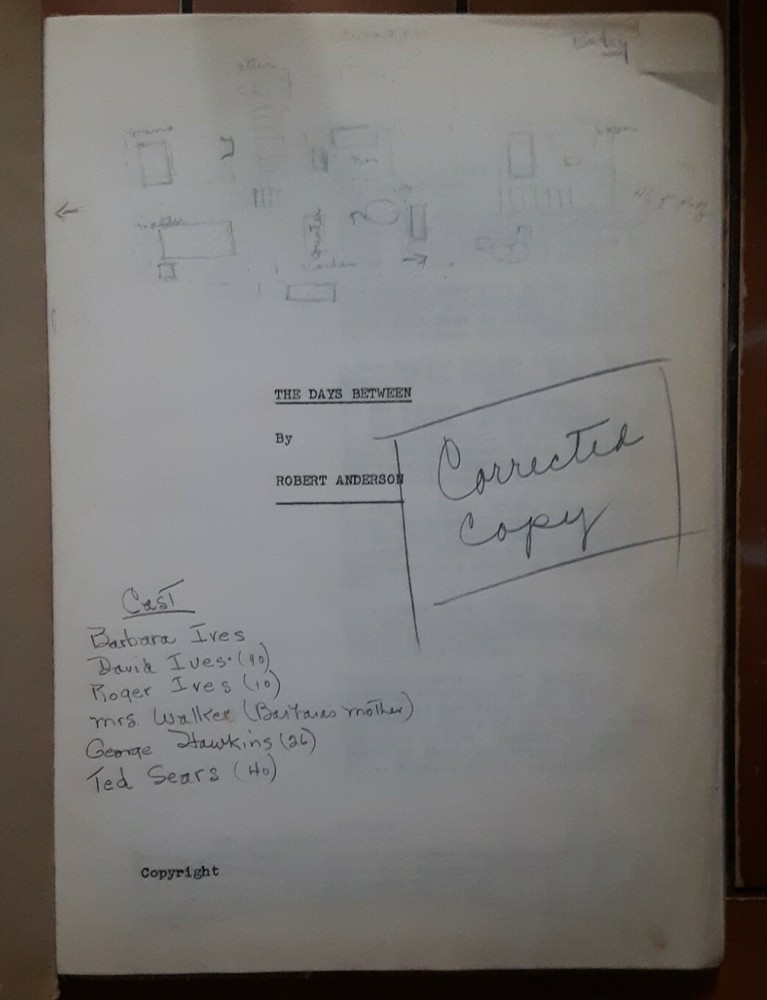 THE DAYS BETWEEN
By
ROBERT ANDERSON
Corrected
Copy
Cast
Barbara Ives
David Ives (40)
Roger Ives (10)
Mrs. Walker (Barbaras mother)
George Hawkins (26)
Ted Sears (40)
Copyright